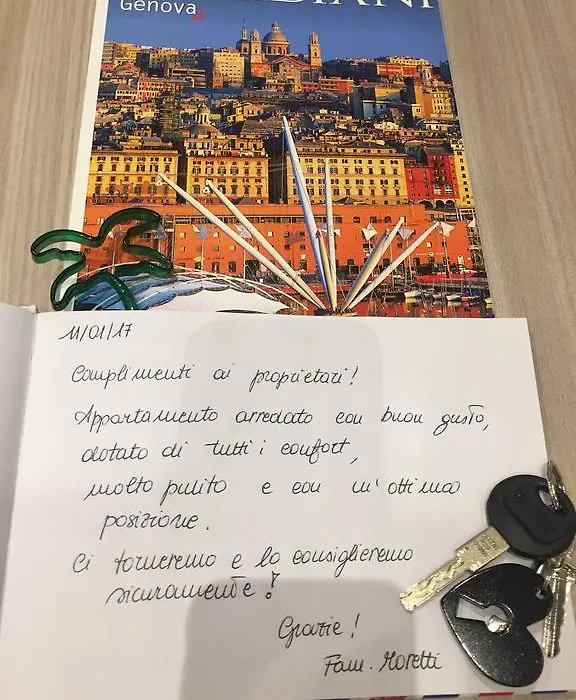 Genova
11/01/17
Complimenti ai proprietari!
Appartamento arredato con buon gusto,
dotato di tutti i confort,
molto pulito e con un'ottima
posizione.
Ci torneremo e lo consiglieremo
sicuramente!
Grazie!
Fam. Moretti